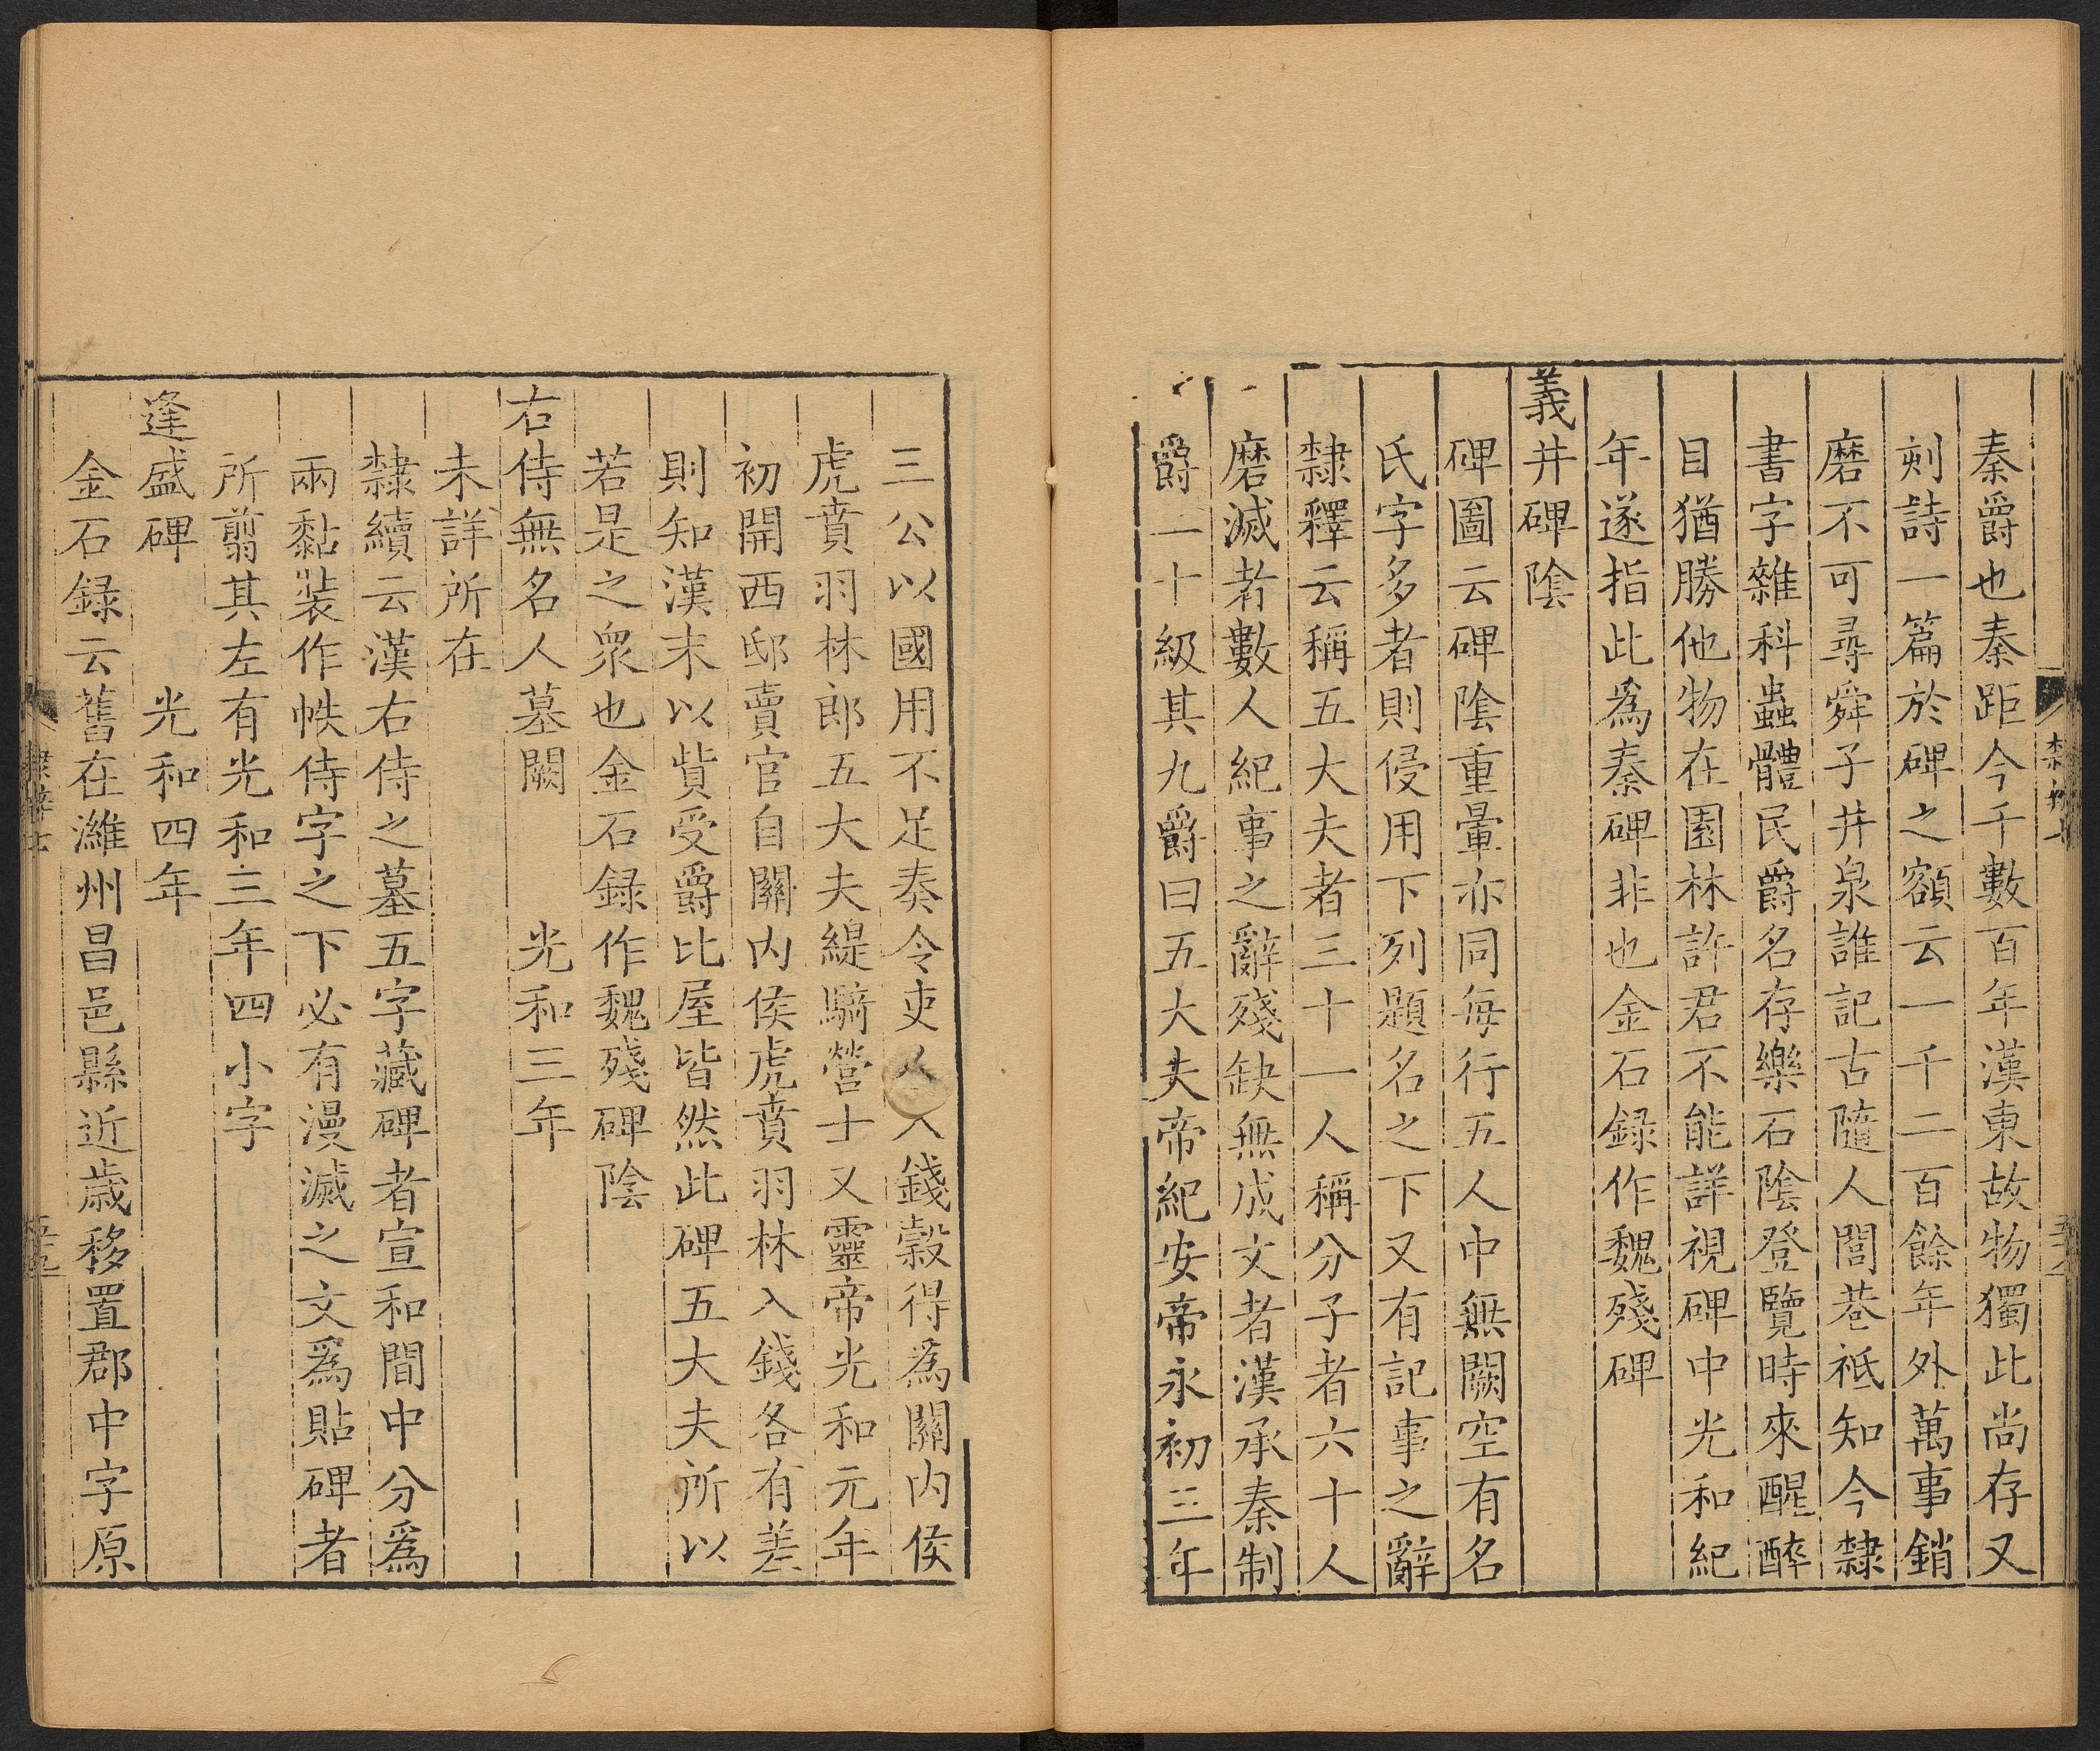 秦爵也秦距今千數百年漢東故物獨此尚存又
刻詩一篇於碑之額云一千二百餘年外萬事銷
磨不可尋舜子井泉誰記古隨人閭巷祗知今隸
書字雜科蟲體民爵名存樂石陰登覽時來醒醉
目猶勝他物在園林許君不能詳視碑中光和紀
年遂指此爲秦碑非也金石録作魏殘碑
義井碑陰
碑圖云碑陰重暈亦同每行五人中無闕空有名
氏字多者則侵用下列題名之下又有記事之辭
隸釋云稱五大夫者三十一人稱分子者六十人
磨滅者數人紀事之辭殘缺無成文者漢承秦制
爵二十級其九爵曰五大夫帝紀安帝永初三年
三公以國用不足奏令吏人入錢穀得爲關内侯
虎賁羽林郎五大夫緹騎營士又靈帝光和元年
初開西邸賣官自關内侯虎賁羽林入錢各有差
則知漢末以貲受爵比屋皆然此碑五大夫所以
若是之衆也金石録作魏殘碑陰
右侍無名人墓闕 光和三年
未詳所在
隸續云漢右侍之墓五字藏碑者宣和間中分爲
兩黏裝作帙侍字之下必有漫滅之文爲貼碑者
所翦其左有光和三年四小字
逢盛碑 光和四年
金石録云舊在濰州昌邑縣近歲移置郡中字原